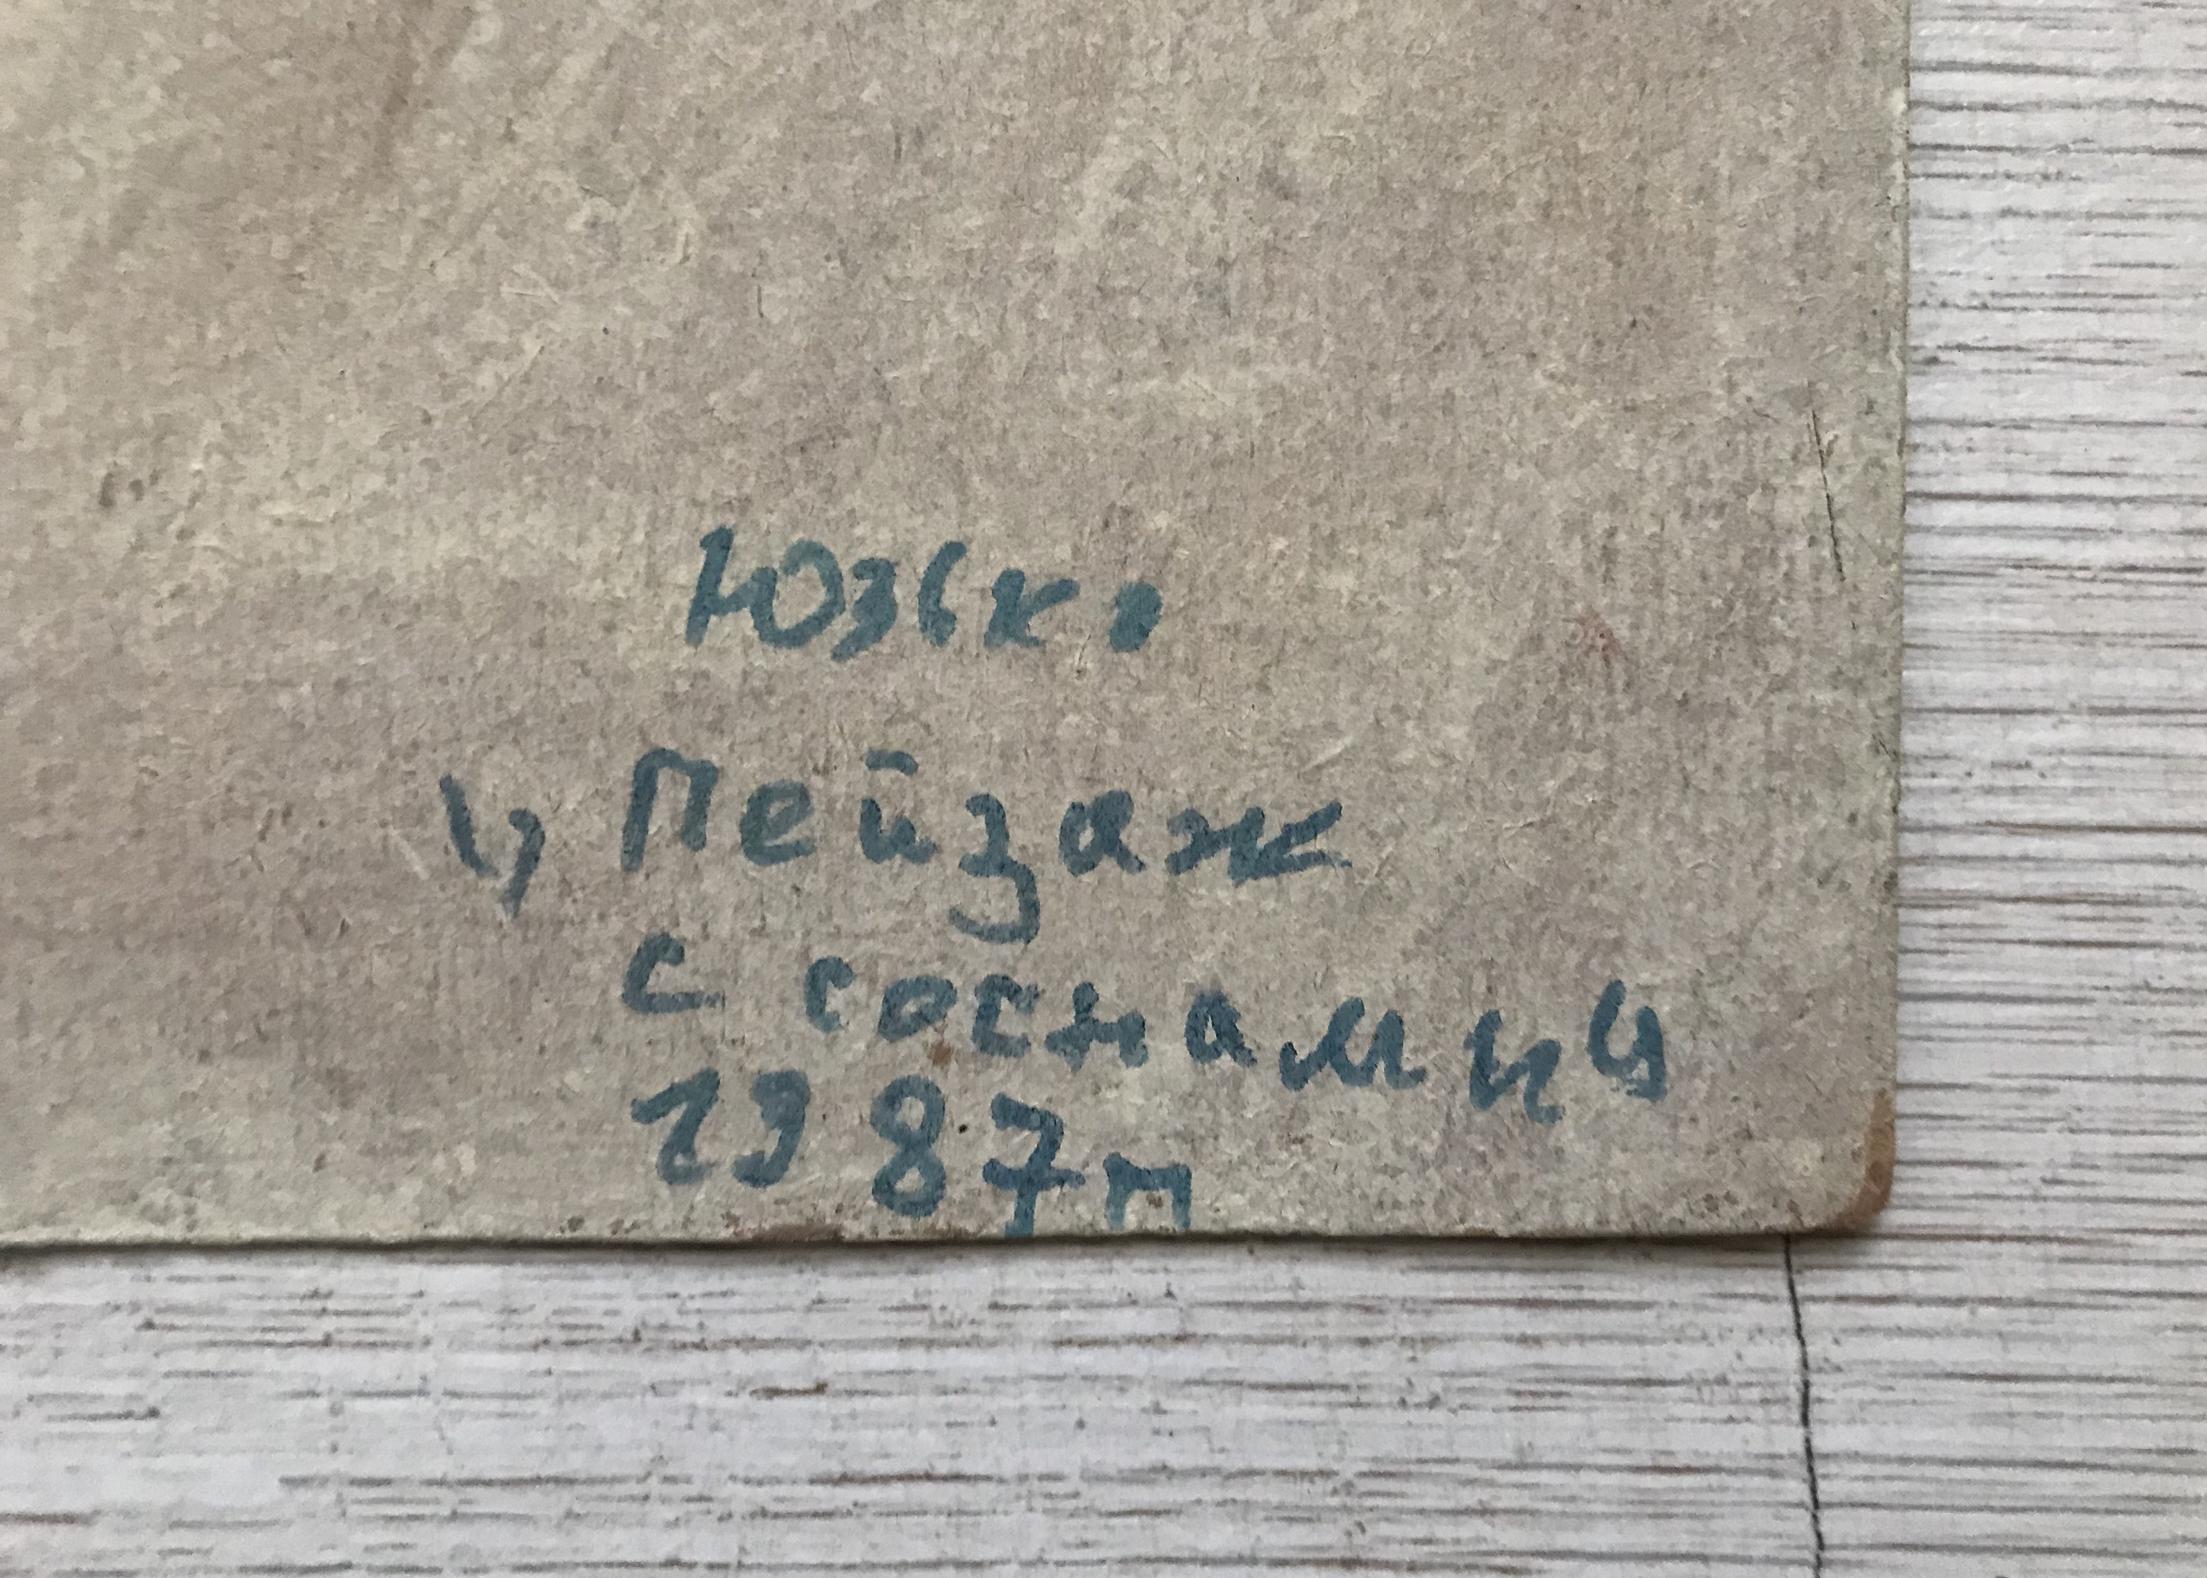 Юзько
„Пейзаж
с соснами"
1987 г